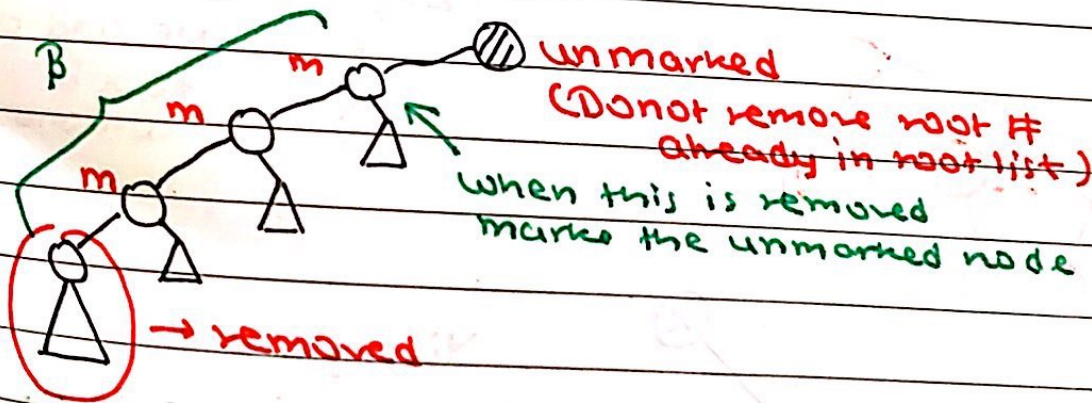 β
m
m
m
unmarked
(Donot remove root #
already in root list)
when this is removed
marke the unmarked node
→ removed